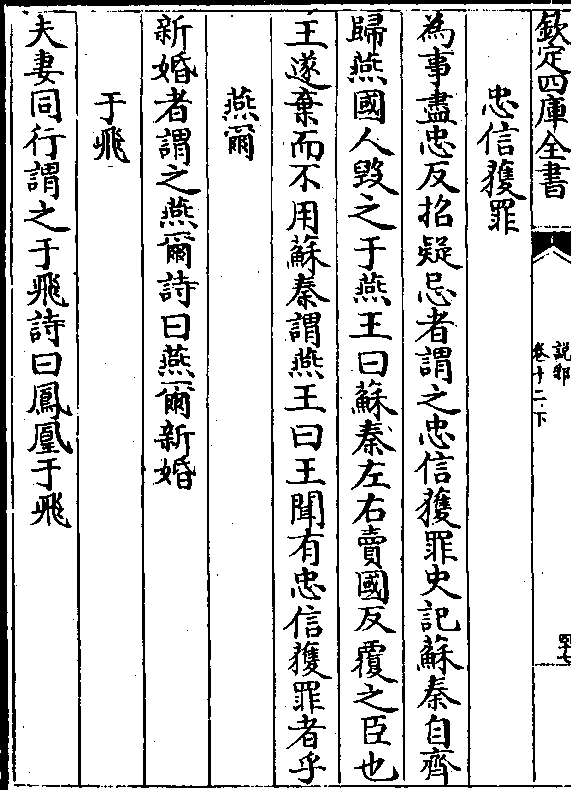 欽定四庫全書
說郛
卷十二下
四十七
忠信獲罪
為事盡忠反招疑忌者謂之忠信獲罪史記蘇秦自齊
歸燕國人毀之于燕王曰蘇秦左右賣國反覆之臣也
王遂棄而不用蘇秦謂燕王曰王聞有忠信獲罪者乎
燕爾
新婚者謂之燕爾詩曰燕爾新婚
于飛
夫妻同行謂之于飛詩曰鳳凰于飛